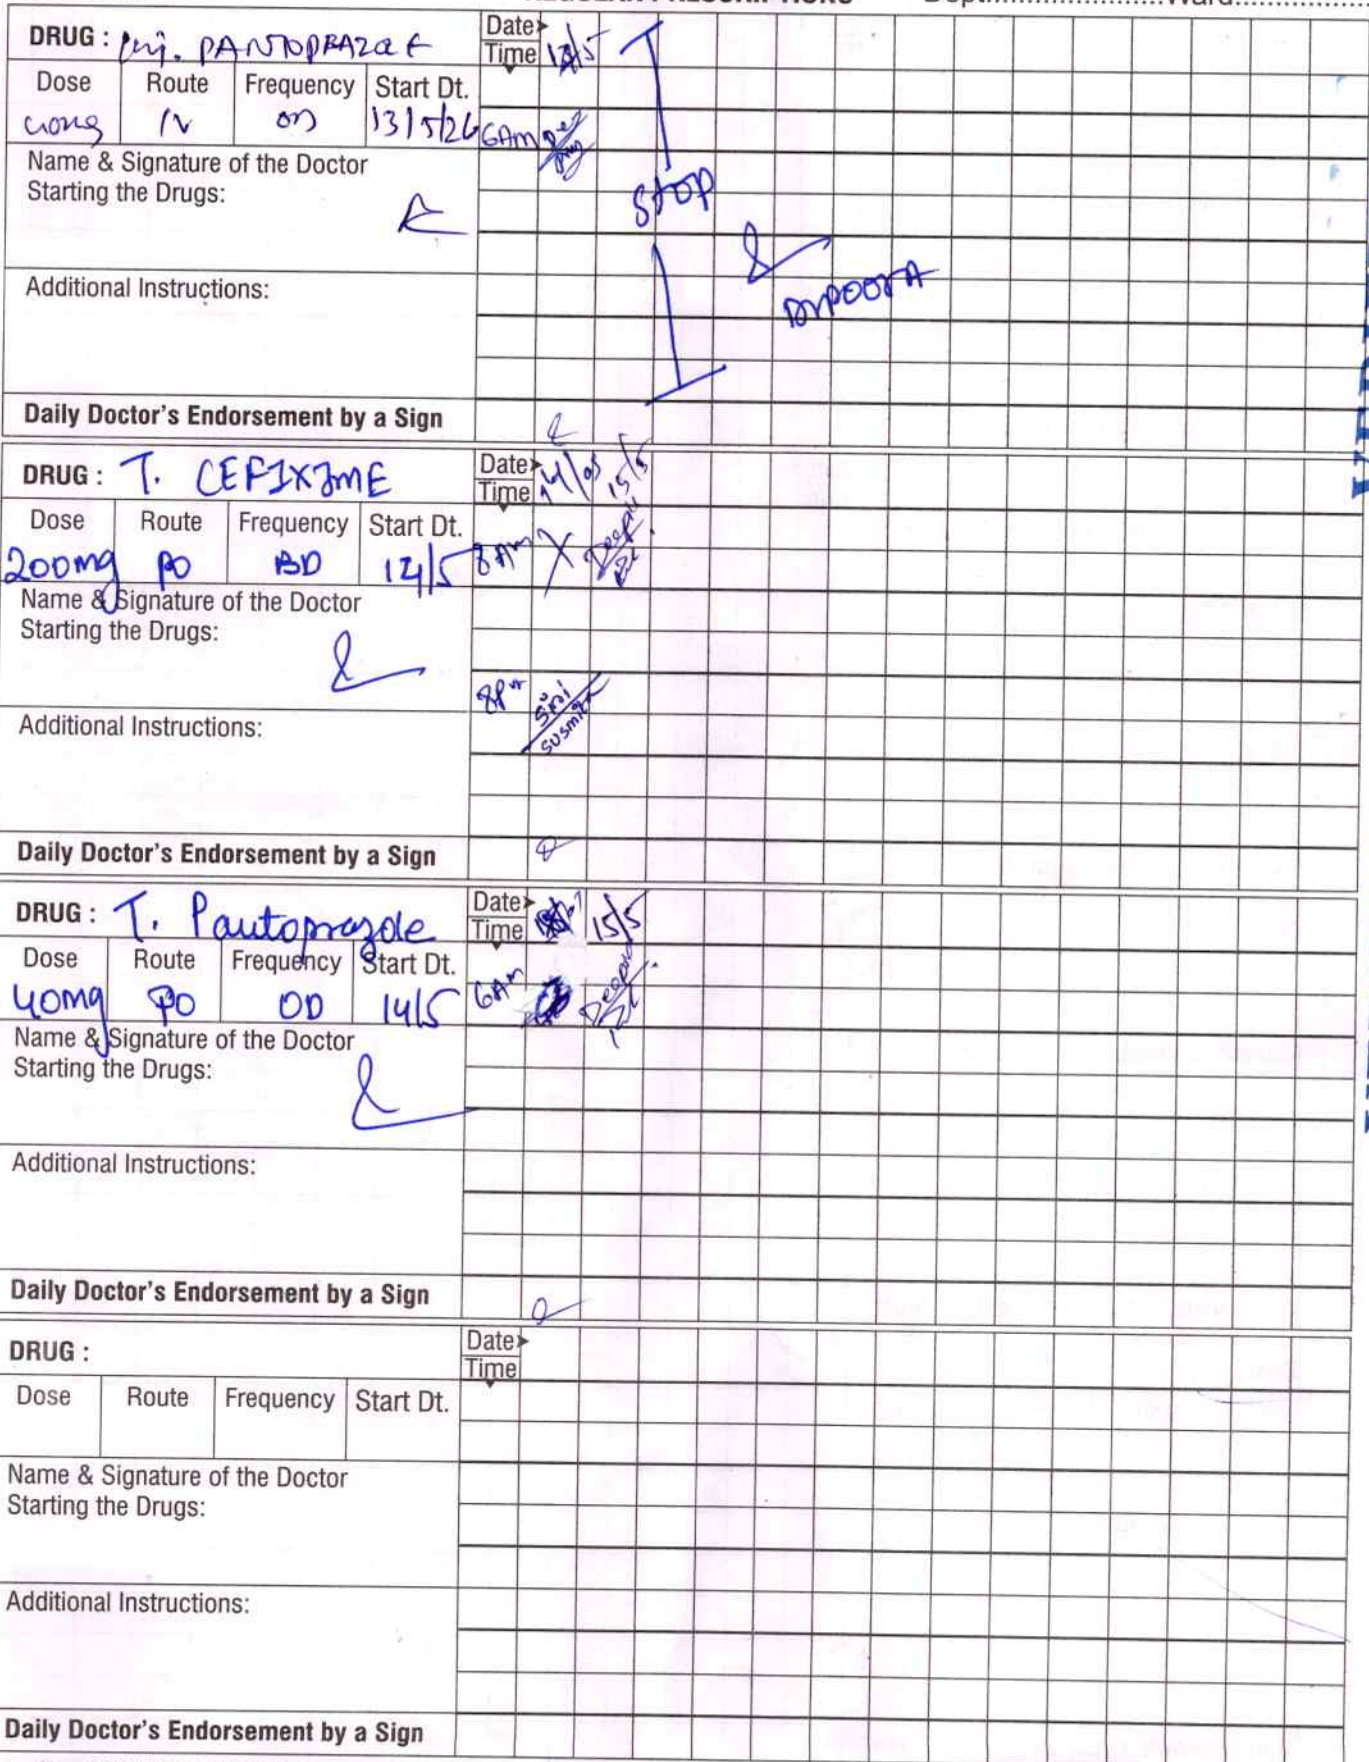 REGULAR PRESCRIPTIONS Dept.......................Ward..................
DRUG : inj. PANTOPRAZOLE Date
Time
Dose Route Frequency Start Dt.
40mg IV OD 13/5/26 6Am
Name & Signature of the Doctor
Starting the Drugs:
STOP
Additional Instructions:
Daily Doctor's Endorsement by a Sign
DRUG : T. CEFIXIME Date 14/05 15/5
Time
Dose Route Frequency Start Dt.
200mg PO BD 14/5 8Am X Deepu
Name & Signature of the Doctor
Starting the Drugs:
8Pm Sini
Susmita
Additional Instructions:
Daily Doctor's Endorsement by a Sign
DRUG : T. Pantoprazole Date 15/5
Time
Dose Route Frequency Start Dt.
40mg PO OD 14/5 6Am
Name & Signature of the Doctor
Starting the Drugs:
Additional Instructions:
Daily Doctor's Endorsement by a Sign
DRUG : Date
Time
Dose Route Frequency Start Dt.
Name & Signature of the Doctor
Starting the Drugs:
Additional Instructions:
Daily Doctor's Endorsement by a Sign